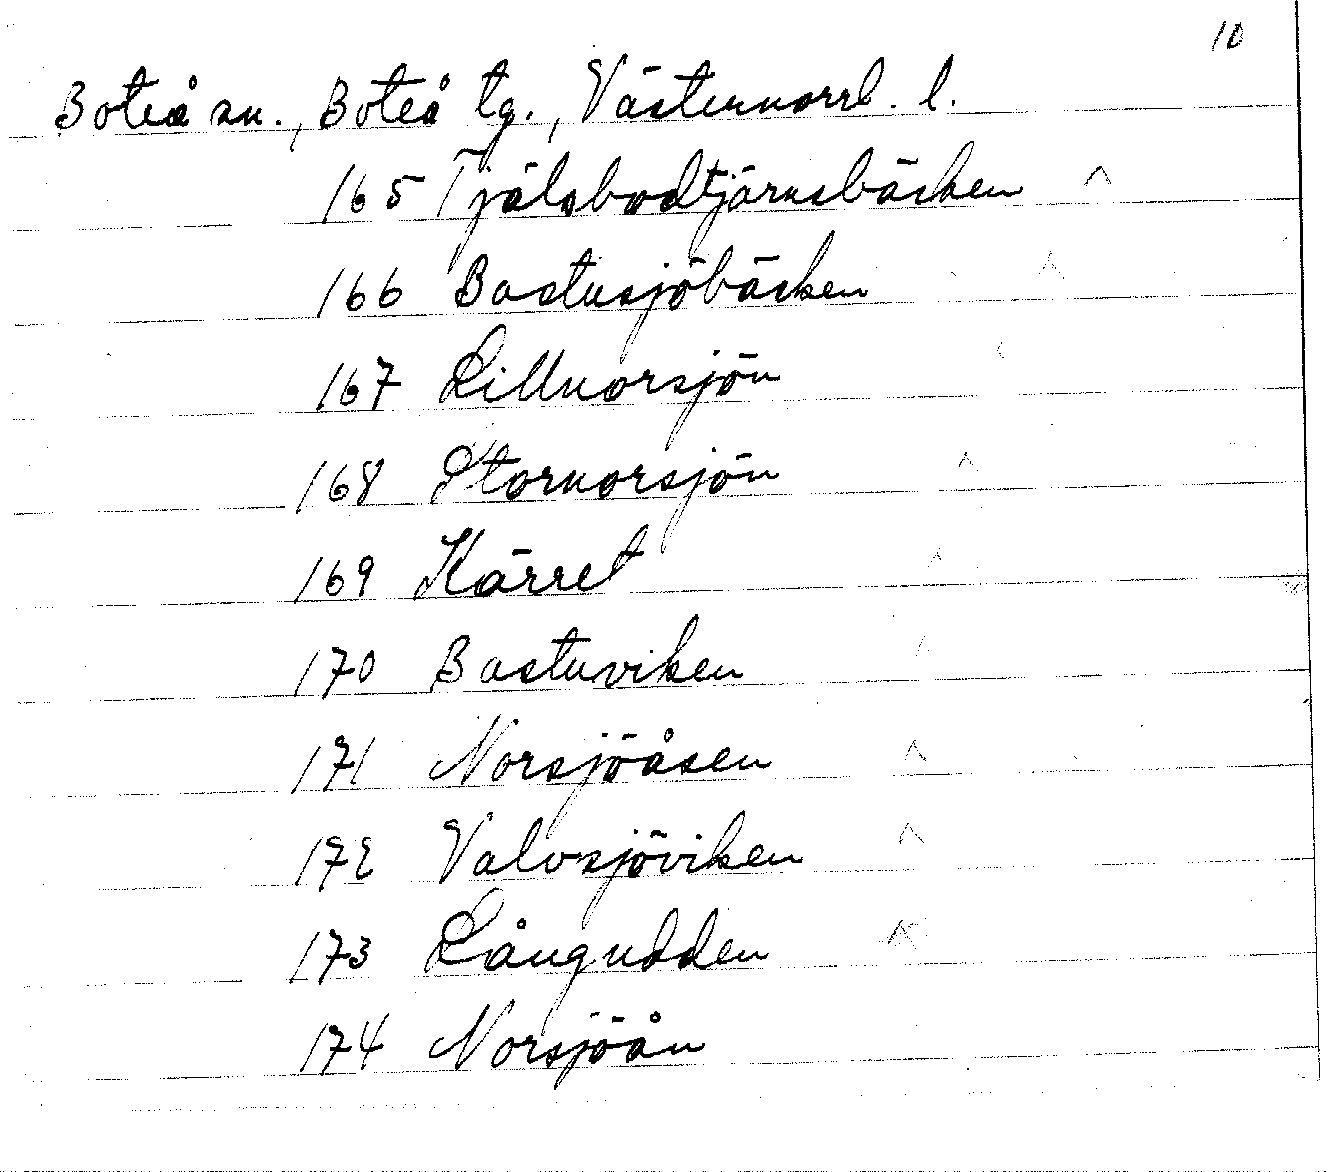 10
Boteå sn., Boteå tg., Västernorrl. l.
165 Tjälsbodtjärnsbäcken
166 Bastusjöbäcken
167 Lillnorsjön
168 Stornorsjön
169 Kärret
170 Bastuviken
171 Norsjöåsen
172 Valvsjöviken
173 Långudden
174 Norsjöån